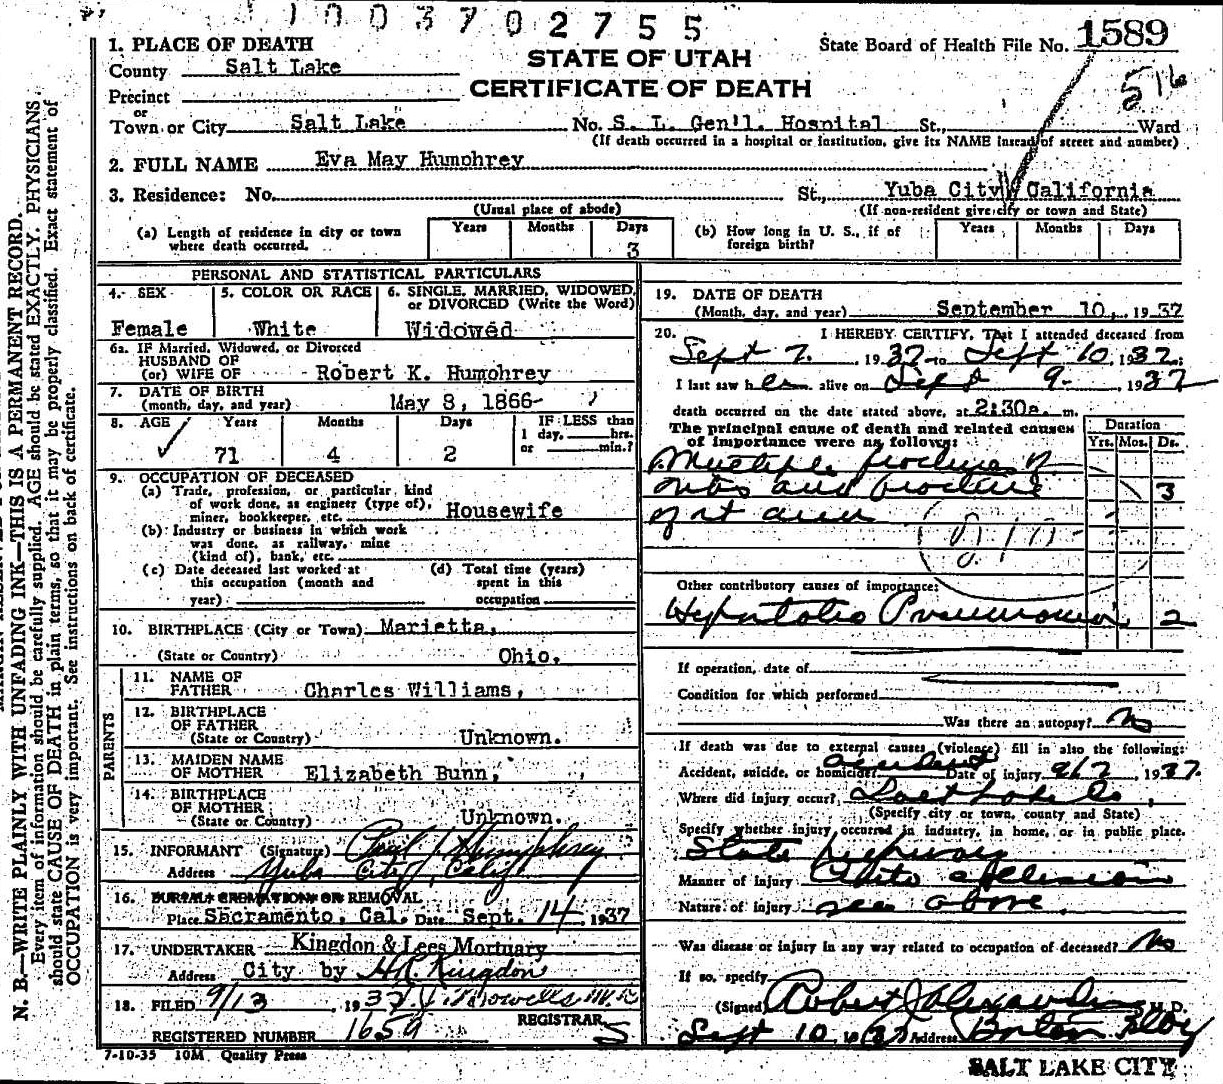 1003702755
1. PLACE OF DEATH
County Salt Lake
STATE OF UTAH
CERTIFICATE OF DEATH
State Board of Health File No. 1589
516
Precinct
or
Town or City Salt Lake No. S. L. Gen'l. Hospital St., Ward
(If death occurred in a hospital or institution, give its NAME instead of street and number)
2. FULL NAME Eva May Humphrey
3. Residence: No. St., Yuba City California
(Usual place of abode) (If non-resident give city or town and State)
(a) Length of residence in city or town where death occurred. Years Months Days 3
(b) How long in U. S., if of foreign birth? Years Months Days
PERSONAL AND STATISTICAL PARTICULARS
4. SEX Female
5. COLOR OR RACE White
6. SINGLE, MARRIED, WIDOWED, or DIVORCED (Write the Word) Widowed
6a. IF Married, Widowed, or Divorced
HUSBAND OF
(or) WIFE OF Robert K. Humphrey
7. DATE OF BIRTH
(month, day, and year) May 8, 1866
8. AGE Years Months Days IF LESS than
71 4 2 1 day, hrs. or min.?
9. OCCUPATION OF DECEASED
(a) Trade, profession, or particular kind
of work done, as engineer (type of),
miner, bookkeeper, etc. Housewife
(b) Industry or business in which work
was done, as railway, mine
(kind of), bank, etc.
(c) Date deceased last worked at
this occupation (month and
year)
(d) Total time (years)
spent in this
occupation
10. BIRTHPLACE (City or Town) Marietta,
(State or Country) Ohio.
PARENTS
11. NAME OF
FATHER Charles Williams,
12. BIRTHPLACE
OF FATHER
(State or Country) Unknown.
13. MAIDEN NAME
OF MOTHER Elizabeth Bunn,
14. BIRTHPLACE
OF MOTHER
(State or Country) Unknown.
15. INFORMANT (Signature) Humphrey
Address Yuba City, Calif
16. BURIAL, CREMATION OR REMOVAL
Place Sacramento, Cal. Date Sept. 14, 1937
17. UNDERTAKER Kingdon & Lees Mortuary
Address City by Kingdon
18. FILED 9/13, 1937
REGISTRAR
REGISTERED NUMBER 1659
7-10-35 10M Quality Press
19. DATE OF DEATH
(Month, day, and year) September 10, 1937
20. I HEREBY CERTIFY, That I attended deceased from
Sept 7. 1937 to Sept 10 1937;
I last saw her alive on Sept 9- , 1937
death occurred on the date stated above, at 2:30a. m.
The principal cause of death and related causes
of importance were as follows:
Duration
Yrs. Mos. Ds.
Multiple fractures of
ribs and fracture 3
of rt arm
Other contributory causes of importance:
Hypostatic Pneumonia 2
If operation, date of
Condition for which performed
Was there an autopsy? No
If death was due to external causes (violence) fill in also the following:
Accident, suicide, or homicide? accident Date of injury 9/7, 1937.
Where did injury occur?
(Specify city or town, county and State)
Specify whether injury occurred in industry, in home, or in public place.
State highway
Manner of injury Auto collision
Nature of injury see above.
Was disease or injury in any way related to occupation of deceased? No
If so, specify
(Signed) Robert J Alexander M. D.
Sept 10 1937 Address
SALT LAKE CITY
N. B.—WRITE PLAINLY WITH UNFADING INK—THIS IS A PERMANENT RECORD.
Every item of information should be carefully supplied. AGE should be stated EXACTLY. PHYSICIANS
should state CAUSE OF DEATH in plain terms, so that it may be properly classified. Exact statement of
OCCUPATION is very important. See instructions on back of certificate.